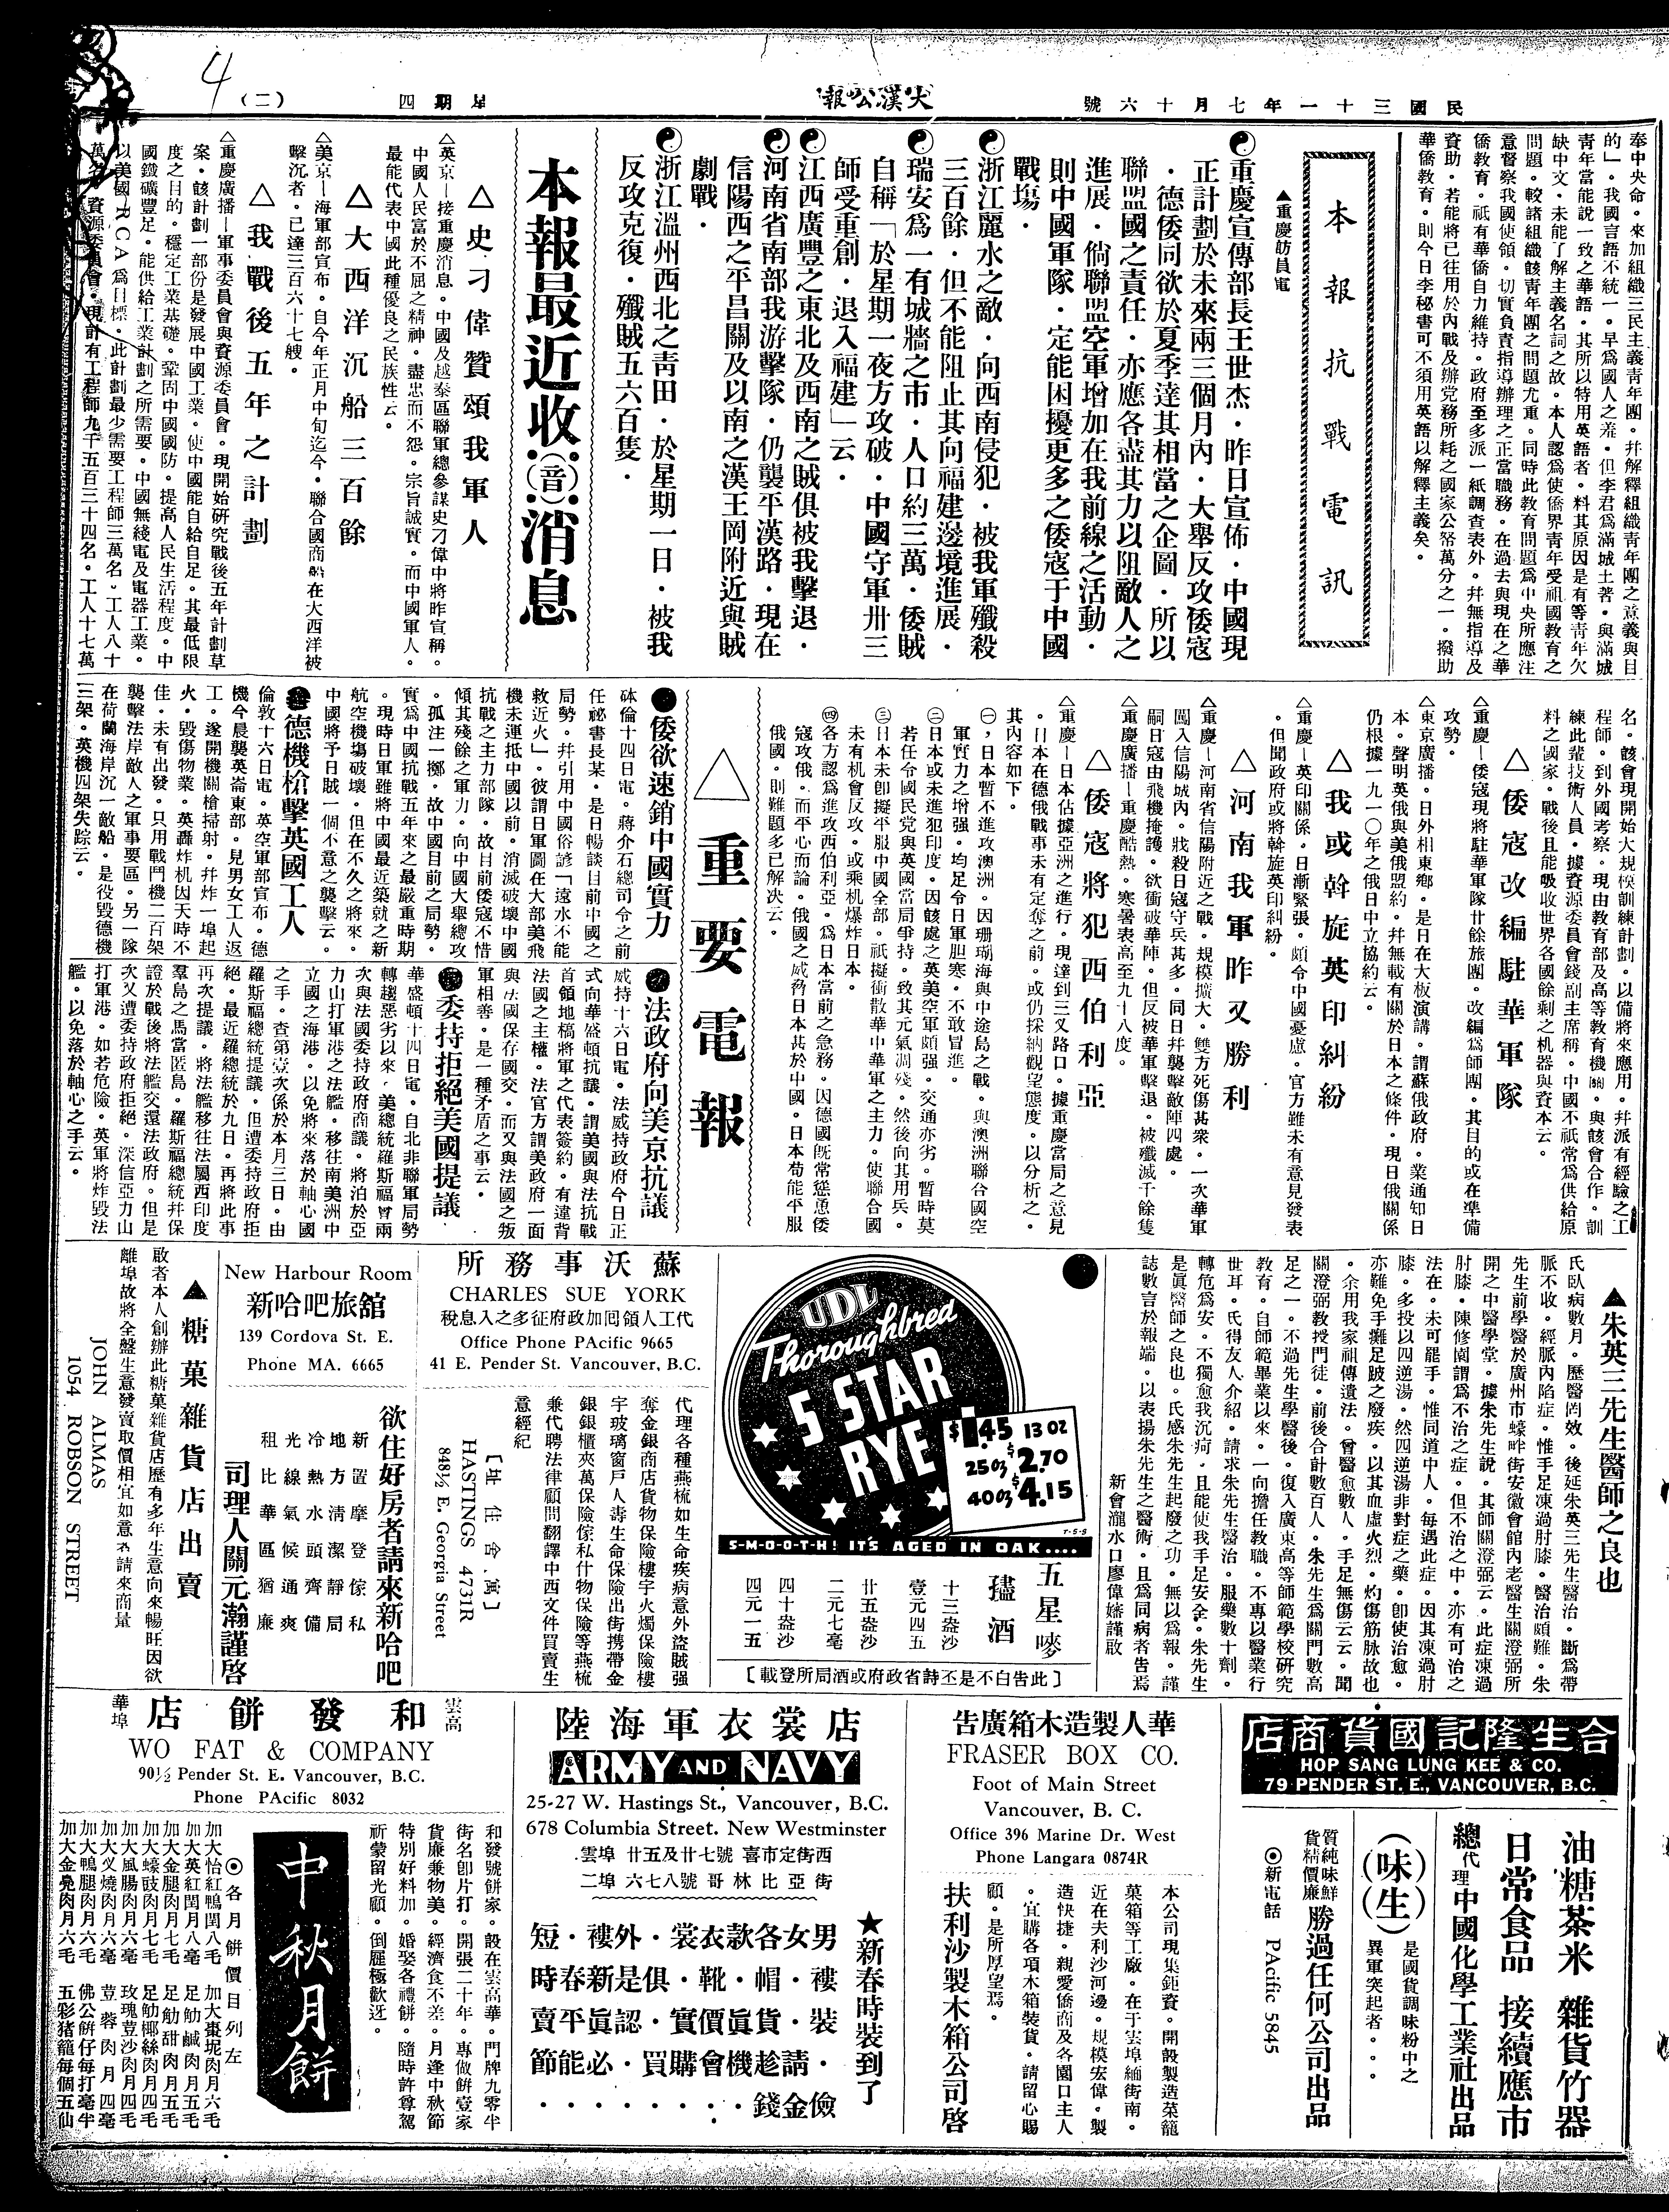 民國三十一年七月十六號
大漢公報
星期四
(二)
4
奉中央命。來加組織三民主義青年團。幷解釋組織青年團之意義與目
的」。我國言語不統一。早爲國人之羞。但李君爲滿城土著。與滿城
青年當能說一致之華語。其所以特用英語者。料其原因是有等青年欠
缺中文。未能了解主義名詞之故。本人認爲使僑界青年受祖國教育之
問題。較諸組織該青年團之問題尤重。同時此教育問題爲中央所應注
意督察我國使領。切實負責指導辦理之正當職務。在過去與現在之華
僑教育。祇有華僑自力維持。政府至多派一紙調查表外。幷無指導及
資助。若能將已往用於內戰及辦党務所耗之國家公帑萬分之一。撥助
華僑教育。則今日李秘書可不須用英語以解釋主義矣。
本報抗戰電訊
▲重慶訪員電
重慶宣傳部長王世杰。昨日宣佈。中國現
正計劃於未來兩三個月內。大舉反攻倭寇
。德倭同欲於夏季達其相當之企圖。所以
聯盟國之責任。亦應各盡其力以阻敵人之
進展。倘聯盟空軍增加在我前線之活動。
則中國軍隊。定能困擾更多之倭寇于中國
戰塲。
浙江麗水之敵。向西南侵犯。被我軍殲殺
三百餘。但不能阻止其向福建邊境進展。
瑞安爲一有城牆之市。人口約三萬。倭賊
自稱「於星期一夜方攻破。中國守軍卅三
師受重創。退入福建」云。
江西廣豐之東北及西南之賊俱被我擊退。
河南省南部我游擊隊。仍襲平漢路。現在
信陽西之平昌關及以南之漢王岡附近與賊
劇戰。
浙江溫州西北之靑田。於星期一日。被我
反攻克復。殲賊五六百隻。
本報最近收(音)消息
△史刁偉贊頌我軍人
△英京—接重慶消息。中國及越泰區聯軍總參謀史刁偉中將昨宣稱。
中國人民富於不屈之精神。盡忠而不怨。宗旨誠實。而中國軍人。
最能代表中國此種優良之民族性云。
△大西洋沉船三百餘
△美京—海軍部宣布。自今年正月中旬迄今。聯合國商船在大西洋被
擊沉者。已達三百六十七艘。
△我戰後五年之計劃
△重慶廣播—軍事委員會與資源委員會。現開始研究戰後五年計劃草
案。該計劃一部份是發展中國工業。使中國能自給自足。其最低限
度之目的。穩定工業基礎。鞏固中國國防。提高人民生活程度。中
國鐵礦豐足。能供給工業計劃之所需要。中國無綫電及電器工業。
以美國RCA爲目標。此計劃最少需要工程師三萬名。工人八十
萬名。資源委員會。現計有工程師九千五百三十四名。工人十七萬
名。該會現開始大規模訓練計劃。以備將來應用。幷派有經驗之工
程師。到外國考察。現由教育部及高等教育機關。與該會合作。訓
練此輩技術人員。據資源委員會錢副主席稱。中國不祇常爲供給原
料之國家。戰後且能吸收世界各國餘剩之机器與資本云。
△倭寇改編駐華軍隊
△重慶—倭寇現將駐華軍隊廿餘旅團。改編爲師團。其目的或在準備
攻勢。
△東京廣播。日外相東鄉。是日在大板演講。謂蘇俄政府。業通知日
本。聲明英俄與美俄盟約。幷無載有關於日本之條件。現日俄關係
仍根據一九一〇年之俄日中立協約云。
△我或斡旋英印糾紛
△重慶—英印關係。日漸緊張。頗令中國憂慮。官方雖未有意見發表
。但聞政府或將斡旋英印糾紛。
△河南我軍昨又勝利
△重慶—河南省信陽附近之戰。規模擴大。雙方死傷甚衆。一次華軍
闖入信陽城內。戕殺日寇守兵甚多。同日幷襲擊敵陣四處。
嗣日寇由飛機掩護。欲衝破華陣。但反被華軍擊退。被殲滅千餘隻
△重慶廣播—重慶酷熱。寒暑表高至九十八度。
△倭寇將犯西伯利亞
△重慶—日本佔據亞洲之進行。現達到三叉路口。據重慶當局之意見
。日本在德俄戰事未有定奪之前。或仍採納觀望態度。以分析之。
其內容如下。
㊀,日本暫不進攻澳洲。因珊瑚海與中途島之戰。與澳洲聯合國空
軍實力之增强。均足令日軍胆寒。不敢冒進。
㊁日本或未進犯印度。因該處之英美空軍頗强。交通亦劣。暫時莫
若任令國民党與英國當局爭持。致其元氣凋殘。然後向其用兵。
㊂日本未卽擬平服中國全部。祇擬衝散華中華軍之主力。使聯合國
未有机會反攻。或乘机爆炸日本。
㊃各方認爲進攻西伯利亞。爲日本當前之急務。因德國旣常慫恿倭
寇攻俄。而平心而論。俄國之威脅日本甚於中國。日本苟能平服
俄國。則難題多已解决云。
△重要電報
倭欲速銷中國實力
砵倫十四日電。蔣介石總司令之前
任祕書長某。是日暢談目前中國之
局勢。幷引用中國俗諺「遠水不能
救近火」。彼謂日軍圖在大部美飛
機未運抵中國以前。消滅破壞中國
抗戰之主力部隊。故目前倭寇不惜
傾其殘餘之軍力。向中國大舉總攻
。孤注一擲。故中國目前之局勢。
實爲中國抗戰五年來之最嚴重時期
。現時日軍雖將中國最近築就之新
航空機塲破壞。但在不久之將來。
中國將予日賊一個不意之襲擊云。
德機槍擊英國工人
倫敦十六日電。英空軍部宣布。德
機今晨襲英崙東部。見男女工人返
工。遂開機關槍掃射。幷炸一埠起
火。毀傷物業。英轟炸机因天時不
佳。未有出發。只用戰鬥機二百架
襲擊法岸敵人之軍事要區。另一隊
在荷蘭海岸沉一敵船。是役毀德機
三架。英機四架失踪云。
法政府向美京抗議
威持十六日電。法威持政府今日正
式向華盛頓抗議。謂美國與法抗戰
首領地稿將軍之代表簽約。有違背
法國之主權。法官方謂美政府一面
與法國保存國交。而又與法國之叛
軍相善。是一種矛盾之事云。
委持拒絕美國提議
華盛頓十四日電。自北非聯軍局勢
轉趨惡劣以來。美總統羅斯福曾兩
次與法國委持政府商議。將泊於亞
力山打軍港之法艦。移往南美洲中
立國之海港。以免將來落於軸心國
之手。查第壹次係於本月三日。由
羅斯福總統提議。但遭委持政府拒
絕。最近羅總統於九日。再將此事
再次提議。將法艦移往法屬西印度
羣島之馬當匿島。羅斯福總統幷保
證於戰後將法艦交還法政府。但是
次又遭委持政府拒絕。深信亞力山
打軍港。如若危險。英軍將炸毀法
艦。以免落於軸心之手云。
▲朱英三先生醫師之良也
氏臥病數月。歷醫罔效。後延朱英三先生醫治。斷爲帶
脈不收。經脈內陷症。惟手足凍過肘膝。醫治頗難。朱
先生前學醫於廣州市蠔畔街安徽會館內老醫生關澄弼所
開之中醫學堂。據朱先生說。其師關澄弼云。此症凍過
肘膝。陳修園謂爲不治之症。但不治之中。亦有可治之
法在。未可罷手。惟同道中人。每遇此症。因其凍過肘
膝。多投以四逆湯。然四逆湯非對症之藥。卽使治愈。
亦難免手攤足跛之廢疾。以其血虛火烈。灼傷筋脉故也
。余用我家祖傳遺法。曾醫愈數人。手足無傷云云。聞
關澄弼教授門徒。前後合計數百人。朱先生爲關門數高
足之一。不過先生學醫後。復入廣東高等師範學校研究
教育。自師範畢業以來。一向擔任教職。不專以醫業行
世耳。氏得友人介紹。請求朱先生醫治。服藥數十劑。
轉危爲安。不獨愈我沉疴。且能使我手足安全。朱先生
是眞醫師之良也。氏感朱先生起廢之功。無以爲報。謹
誌數言於報端。以表揚朱先生之醫術。且爲同病者告焉
新會瀧水口廖偉嬸謹啟
UDL
Thoroughbred
5 STAR
RYE
$1.45 13 OZ
25 OZ $2.70
40 OZ $4.15
7-5-8
S-M-O-O-T-H! IT'S AGED IN OAK....
五星嘜
𥖁酒
十三盎沙
壹元四五
廿五盎沙
二元七毫
四十盎沙
四元一五
[此告白不是丕詩省政府或酒局所登載]
蘇沃事務所
CHARLES SUE YORK
代工人領囘加政府征多之入息稅
Office Phone PAcific 9665
41 E. Pender St. Vancouver, B.C.
代理各種燕梳如生命疾病意外盜賊强
奪金銀商店貨物保險樓宇火燭保險樓
宇玻璃窗戶人壽生命保險出街携帶金
銀銀櫃夾萬保險傢私什物保險等燕梳
兼代聘法律顧問翻譯中西文件買賣生
意經紀
HASTINGS 4731R
848½ E. Georgia Street
New Harbour Room
新哈吧旅舘
139 Cordova St. E.
Phone MA. 6665
欲住好房者請來新哈吧
新置摩登傢私
地方淸潔靜局
冷熱水頭齊備
光線氣候通爽
租比華區猶廉
司理人關元瀚謹啓
▲糖菓雜貨店出賣
啟者本人創辦此糖菓雜貨店歷有多年生意向來暢旺因欲
離埠故將全盤生意發賣取價相宜如意者請來商量
JOHN ALMAS
1054 ROBSON STREET
合生隆記國貨商店
HOP SANG LUNG KEE & CO.
79 PENDER ST. E., VANCOUVER, B.C.
油糖茶米 雜貨竹器
日常食品 接續應市
總代理 中國化學工業社出品
(味生)
是國貨調味粉中之
異軍突起者。。。
質純味鮮
貨精價廉
勝過任何公司出品
◎新電話 PAcific 5845
華人製造木箱廣告
FRASER BOX CO.
Foot of Main Street
Vancouver, B. C.
Office 396 Marine Dr. West
Phone Langara 0874R
本公司現集鉅資。開設製造菜籠
菓箱等工廠。在于雲埠緬街南。
近在夫利沙河邊。規模宏偉。製
造快捷。親愛僑商及各園口主人
。宜購各項木箱裝貨。請留心賜
顧。是所厚望焉。
扶利沙製木箱公司啓
店裳衣軍海陸
ARMY AND NAVY
25-27 W. Hastings St., Vancouver, B.C.
678 Columbia Street. New Westminster
西街定市喜 號七廿及五廿 埠雲.
街亞比林哥 號八七六 埠二
★新春時裝到了
男女各款衣裳。外褸。短
褸。帽。靴。俱是新春時
裝。貨眞價實。認眞平賣
。請趁機會購買。必能節
儉金錢。。。。。。。。
雲高
華埠
和發餅店
WO FAT & COMPANY
90½ Pender St. E. Vancouver, B.C.
Phone PAcific 8032
和發號餅家。設在雲高華。門牌九零半
街名卽片打。開張二十年。專做餅壹家
貨廉兼物美。經濟食不差。月逢中秋節
特別好料加。婚娶各禮餅。隨時許尊駕
祈蒙留光顧。倒屣極歡迓。
中秋月餅
◎各月餅價目列左
加大怡紅鴨閏八毛
加大英紅閏月八毫
加大金腿肉月七毛
加大蠔豉肉月七毛
加大風腸肉月六毫
加大叉燒肉月六毫
加大鴨腿肉月六毛
加大金堯肉月六毛
加大棗坭肉月六毛
足觔鹹肉月五毛
足觔甜肉月五毛
足觔椰絲肉月四毛
玫瑰荳沙肉月四毛
荳蓉肉月四毫
佛公餅仔每打毫半
五彩猪籠每個五仙